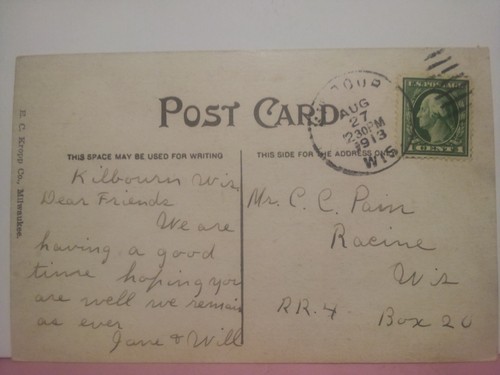 POST CARD
THIS SPACE MAY BE USED FOR WRITING
Kilbourn Wis.
Dear Friends
We are
having a good
time hoping you
are well we remain
as ever
Jane & Will
THIS SIDE FOR THE ADDRESS ONLY
Mr. C. C. Pain
Racine
Wis
RR. 4 Box 20
AUG
27
2:30PM
1913
WIS
U.S. POSTAGE
1 CENT 1
E. C. Kropp Co., Milwaukee.